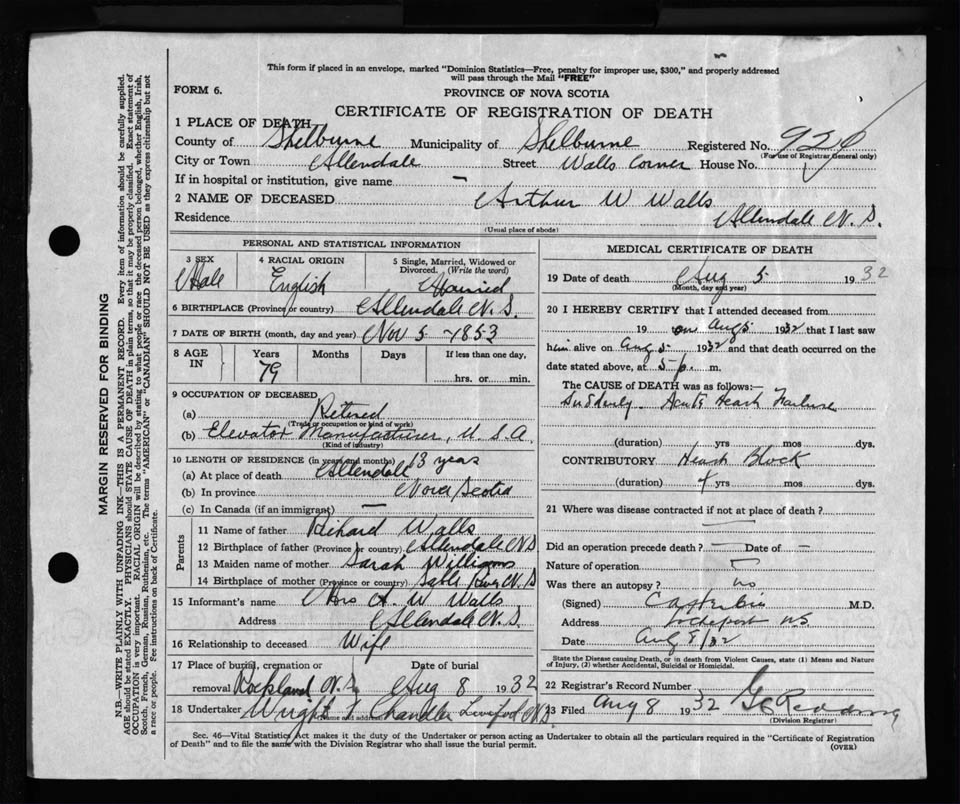 This form if placed in an envelope, marked "Dominion Statistics—Free, penalty for improper use, $300," and properly addressed
will pass through the Mail "FREE"
FORM 6.
PROVINCE OF NOVA SCOTIA
CERTIFICATE OF REGISTRATION OF DEATH
1 PLACE OF DEATH
County of Shelburne Municipality of Shelburne Registered No. 926
(For use of Registrar General only)
City or Town Allendale Street Walls Corner House No.
If in hospital or institution, give name —
2 NAME OF DECEASED Arthur W Walls
Residence Allendale N. S.
(Usual place of abode)
PERSONAL AND STATISTICAL INFORMATION
3 SEX 4 RACIAL ORIGIN 5 Single, Married, Widowed or
Divorced. (Write the word)
Male English Married
6 BIRTHPLACE (Province or country) Allendale N. S.
7 DATE OF BIRTH (month, day and year) Nov 5 - 1853
8 AGE IN Years Months Days If less than one day,
79 hrs. or min.
9 OCCUPATION OF DECEASED
(a) Retired
(Trade or occupation or kind of work)
(b) Elevator Manufacturer, U. S. A.
(Kind of industry)
10 LENGTH OF RESIDENCE (in years and months)
(a) At place of death Allendale 13 years
(b) In province Nova Scotia
(c) In Canada (if an immigrant) —
Parents
11 Name of father Richard Walls
12 Birthplace of father (Province or country) Allendale N S
13 Maiden name of mother Sarah Williams
14 Birthplace of mother (Province or country) Sable River N. S
15 Informant's name Mrs A. W. Walls
Address Allendale N. S.
16 Relationship to deceased Wife
17 Place of burial, cremation or Date of burial
removal Rockland N. S. Aug 8 1932
18 Undertaker Wright & Chandler Liverpool N S.
(Name and address)
MEDICAL CERTIFICATE OF DEATH
19 Date of death Aug 5 1932
(Month, day and year)
20 I HEREBY CERTIFY that I attended deceased from
19 on Aug 5 1932 that I last saw
him alive on Aug 5 1932 and that death occurred on the
date stated above, at 5 p. m.
The CAUSE of DEATH was as follows:—
Suddenly. Acute Heart Failure
(duration) yrs mos dys.
CONTRIBUTORY Heart Block
(duration) yrs mos dys.
21 Where was disease contracted if not at place of death?
Did an operation precede death? — Date of —
Nature of operation
Was there an autopsy? no
(Signed) M.D.
Address Lockeport N S
Date Aug 8/32
State the Disease causing Death, or in death from Violent Causes, state (1) Means and Nature
of Injury, (2) whether Accidental, Suicidal or Homicidal.
22 Registrar's Record Number
23 Filed Aug 8 1932
(Division Registrar)
Sec. 46—Vital Statistics Act makes it the duty of the Undertaker or person acting as Undertaker to obtain all the particulars required in the "Certificate of Registration
of Death" and to file the same with the Division Registrar who shall issue the burial permit.
(OVER)
MARGIN RESERVED FOR BINDING
N.B.—WRITE PLAINLY WITH UNFADING INK—THIS IS A PERMANENT RECORD. Every item of information should be carefully supplied.
AGE should be stated EXACTLY. PHYSICIANS should STATE CAUSE OF DEATH in plain terms, so that it may be properly classified. Exact statement of
OCCUPATION is very important. RACIAL ORIGIN will be described by stating to what people or race the deceased person belonged, whether English, Irish,
Scotch, French, German, Russian, Ruthenian, etc. The terms "AMERICAN" or "CANADIAN" SHOULD NOT BE USED as they express citizenship but not
a race or people. See instructions on back of Certificate.